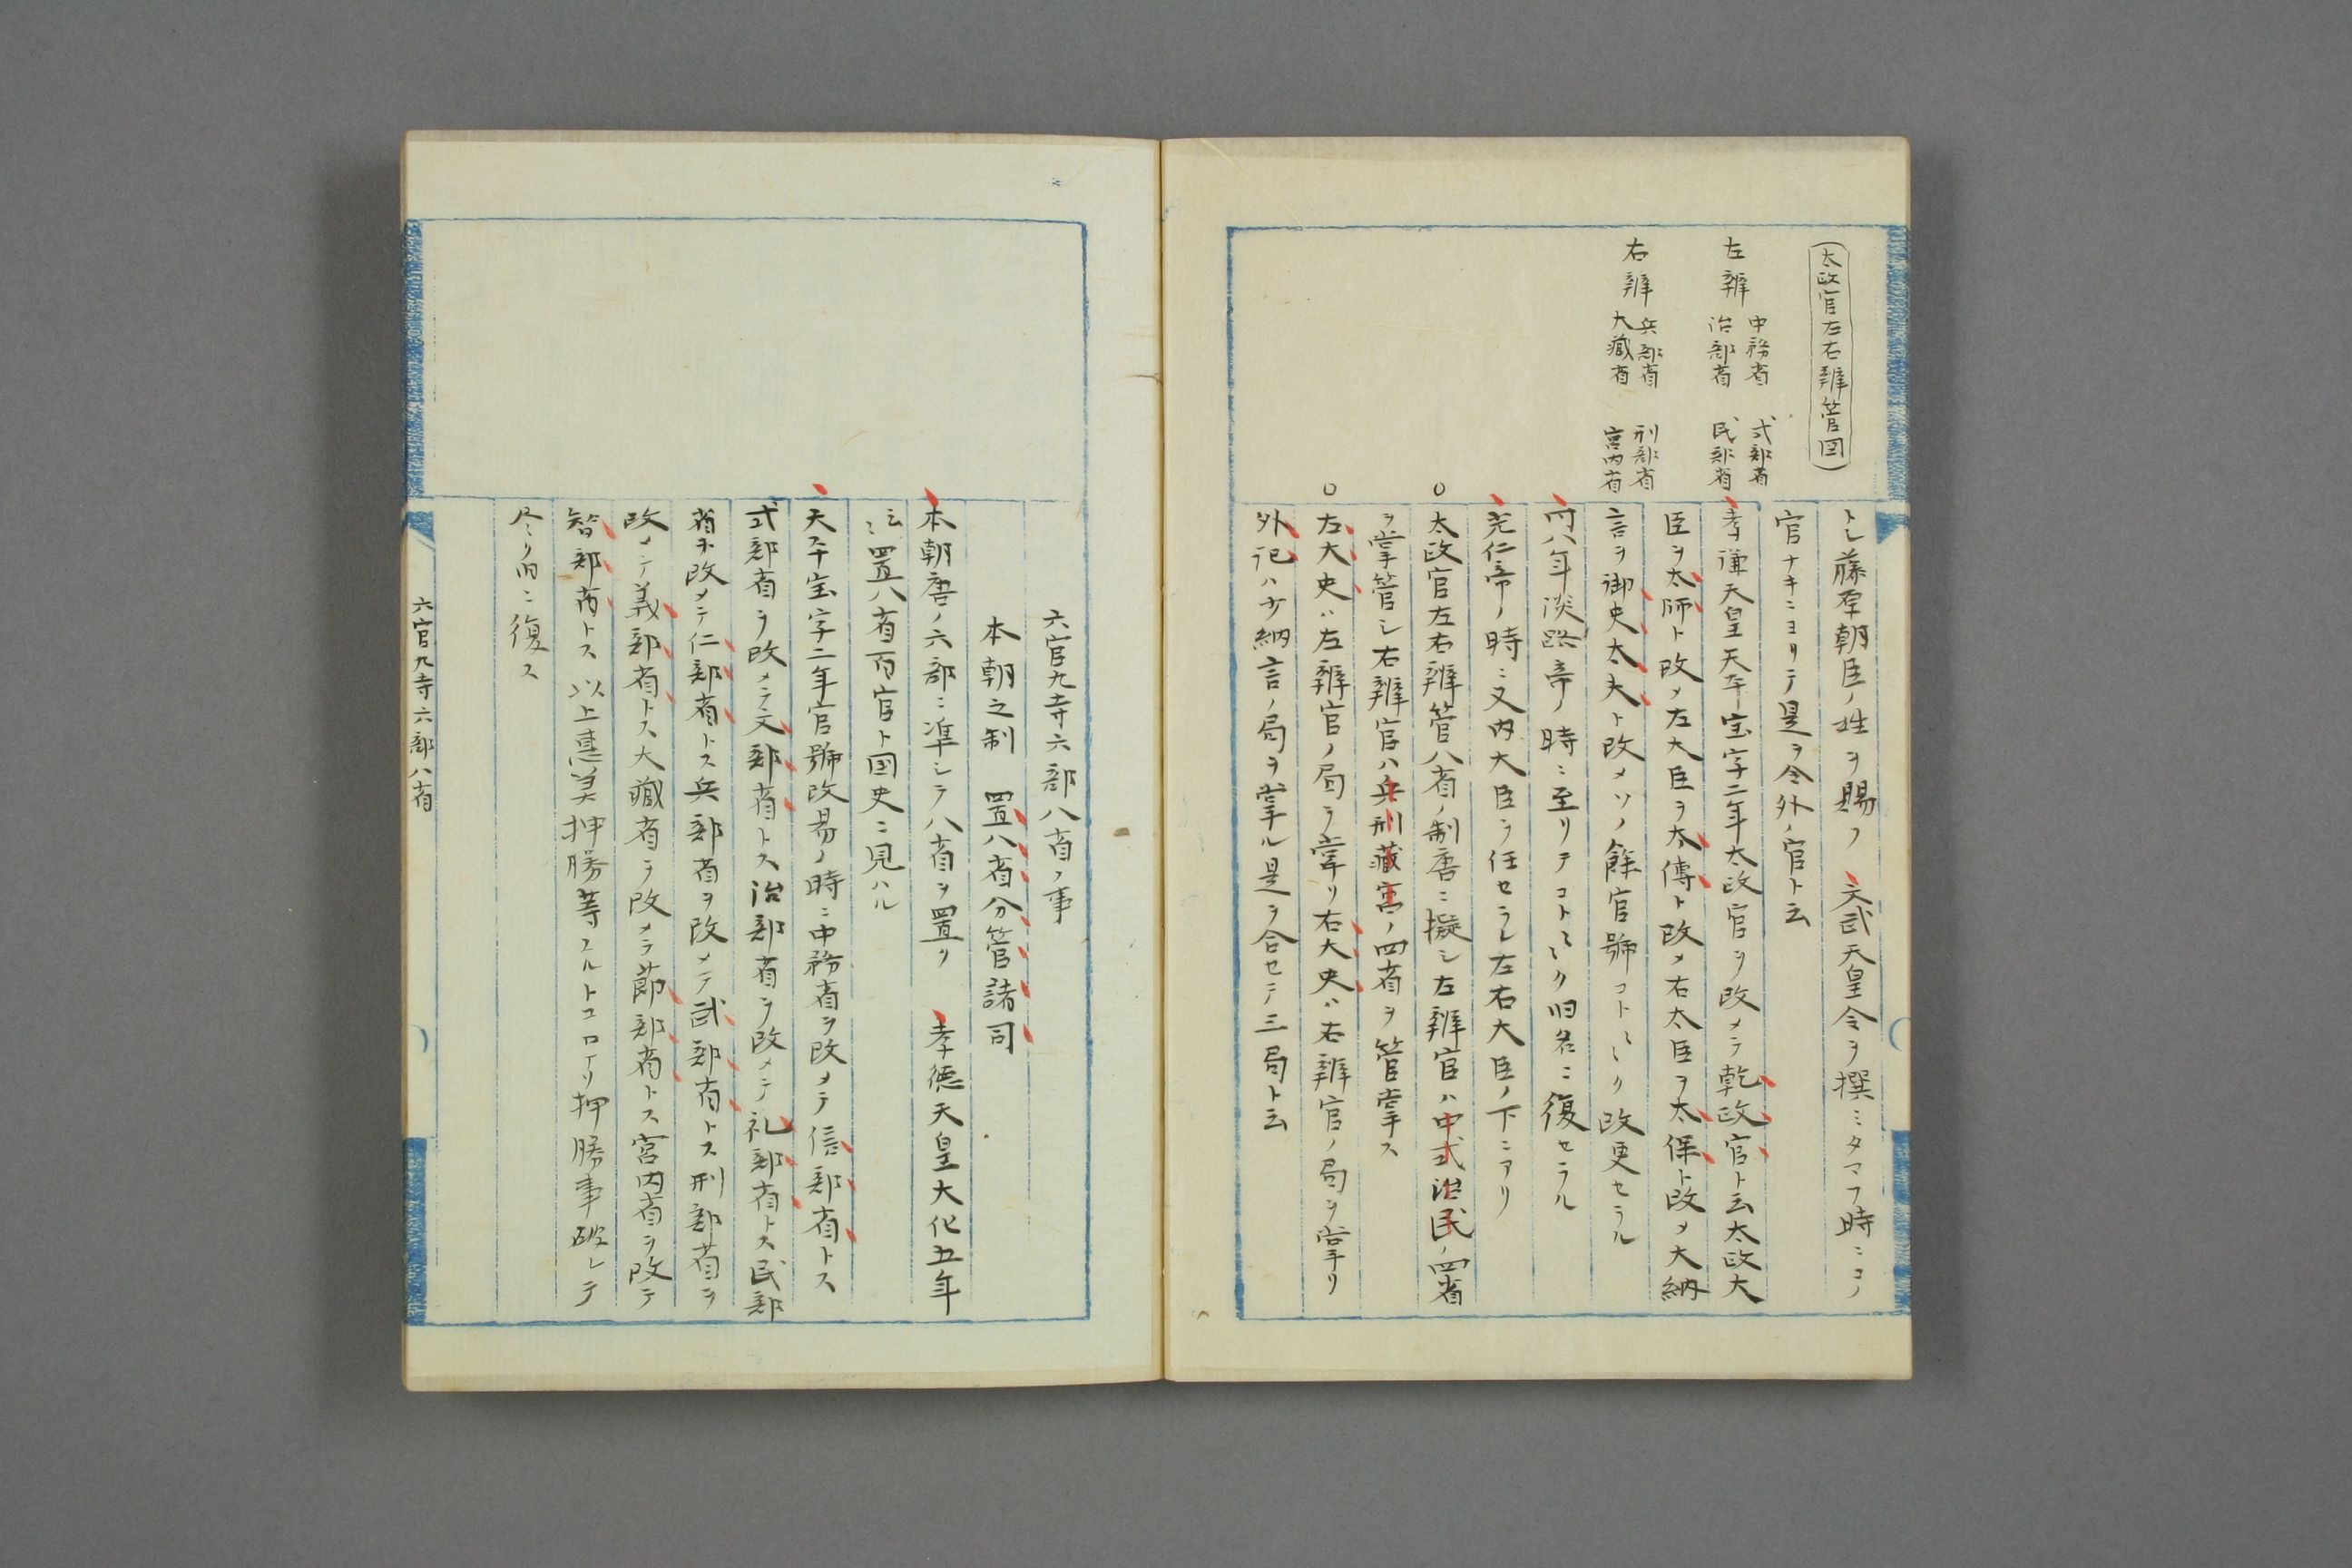 太政官左右辨管図
左辨 中務省 式部省
治部省 民部省
右辨 兵部省 刑部省
大藏省 宮内省
トシ藤原朝臣ノ姓ヲ賜フ 文武天皇令ヲ撰ミタマフ時ニコノ
官ナキニヨリテ是ヲ令外ノ官ト云
孝謙天皇天平宝字二年太政官ヲ改メテ乾政官ト云太政大
臣ヲ太師ト改メ左大臣ヲ太傳ト改メ右大臣ヲ太保ト改メ大納
言ヲ御史太夫ト改メソノ餘官號コトヾク改更セラル
同八年淡路帝ノ時ニ至リテコトヾク旧名ニ復セラル
光仁帝ノ時ニ又内大臣ヲ任セラレ左右大臣ノ下ニアリ
○太政官左右辨管八省ノ制唐ニ擬シ左辨官ハ中式治民ノ四省
ヲ掌管シ右辨官ハ兵刑藏宮ノ四省ヲ管掌ス
○左大史ハ左辨官ノ局ヲ掌リ右大史ハ右辨官ノ局ヲ掌リ
外記ハ少納言ノ局ヲ掌ル是ヲ合セテ三局ト云
六官九寺六部八省ノ事
本朝之制 置八省分管諸司
本朝唐ノ六部ニ準シテ八省ヲ置リ 孝徳天皇大化五年
云〻置八省百官ト国史ニ見ハル
天平宝字二年官號改易ノ時ニ中務省ヲ改メテ信部省トス
式部省ヲ改メテ文部省トス治部省ヲ改メテ礼部省トス民部
省ヲ改メテ仁部省トス兵部省ヲ改メテ武部省トス刑部省ヲ
改メテ義部省トス大藏省ヲ改メテ節部省トス宮内省ヲ改テ
智部省トス以上恵美押勝等スルトコロナリ押勝事破レテ
尽ク旧ニ復ス
六官九寺六部八省